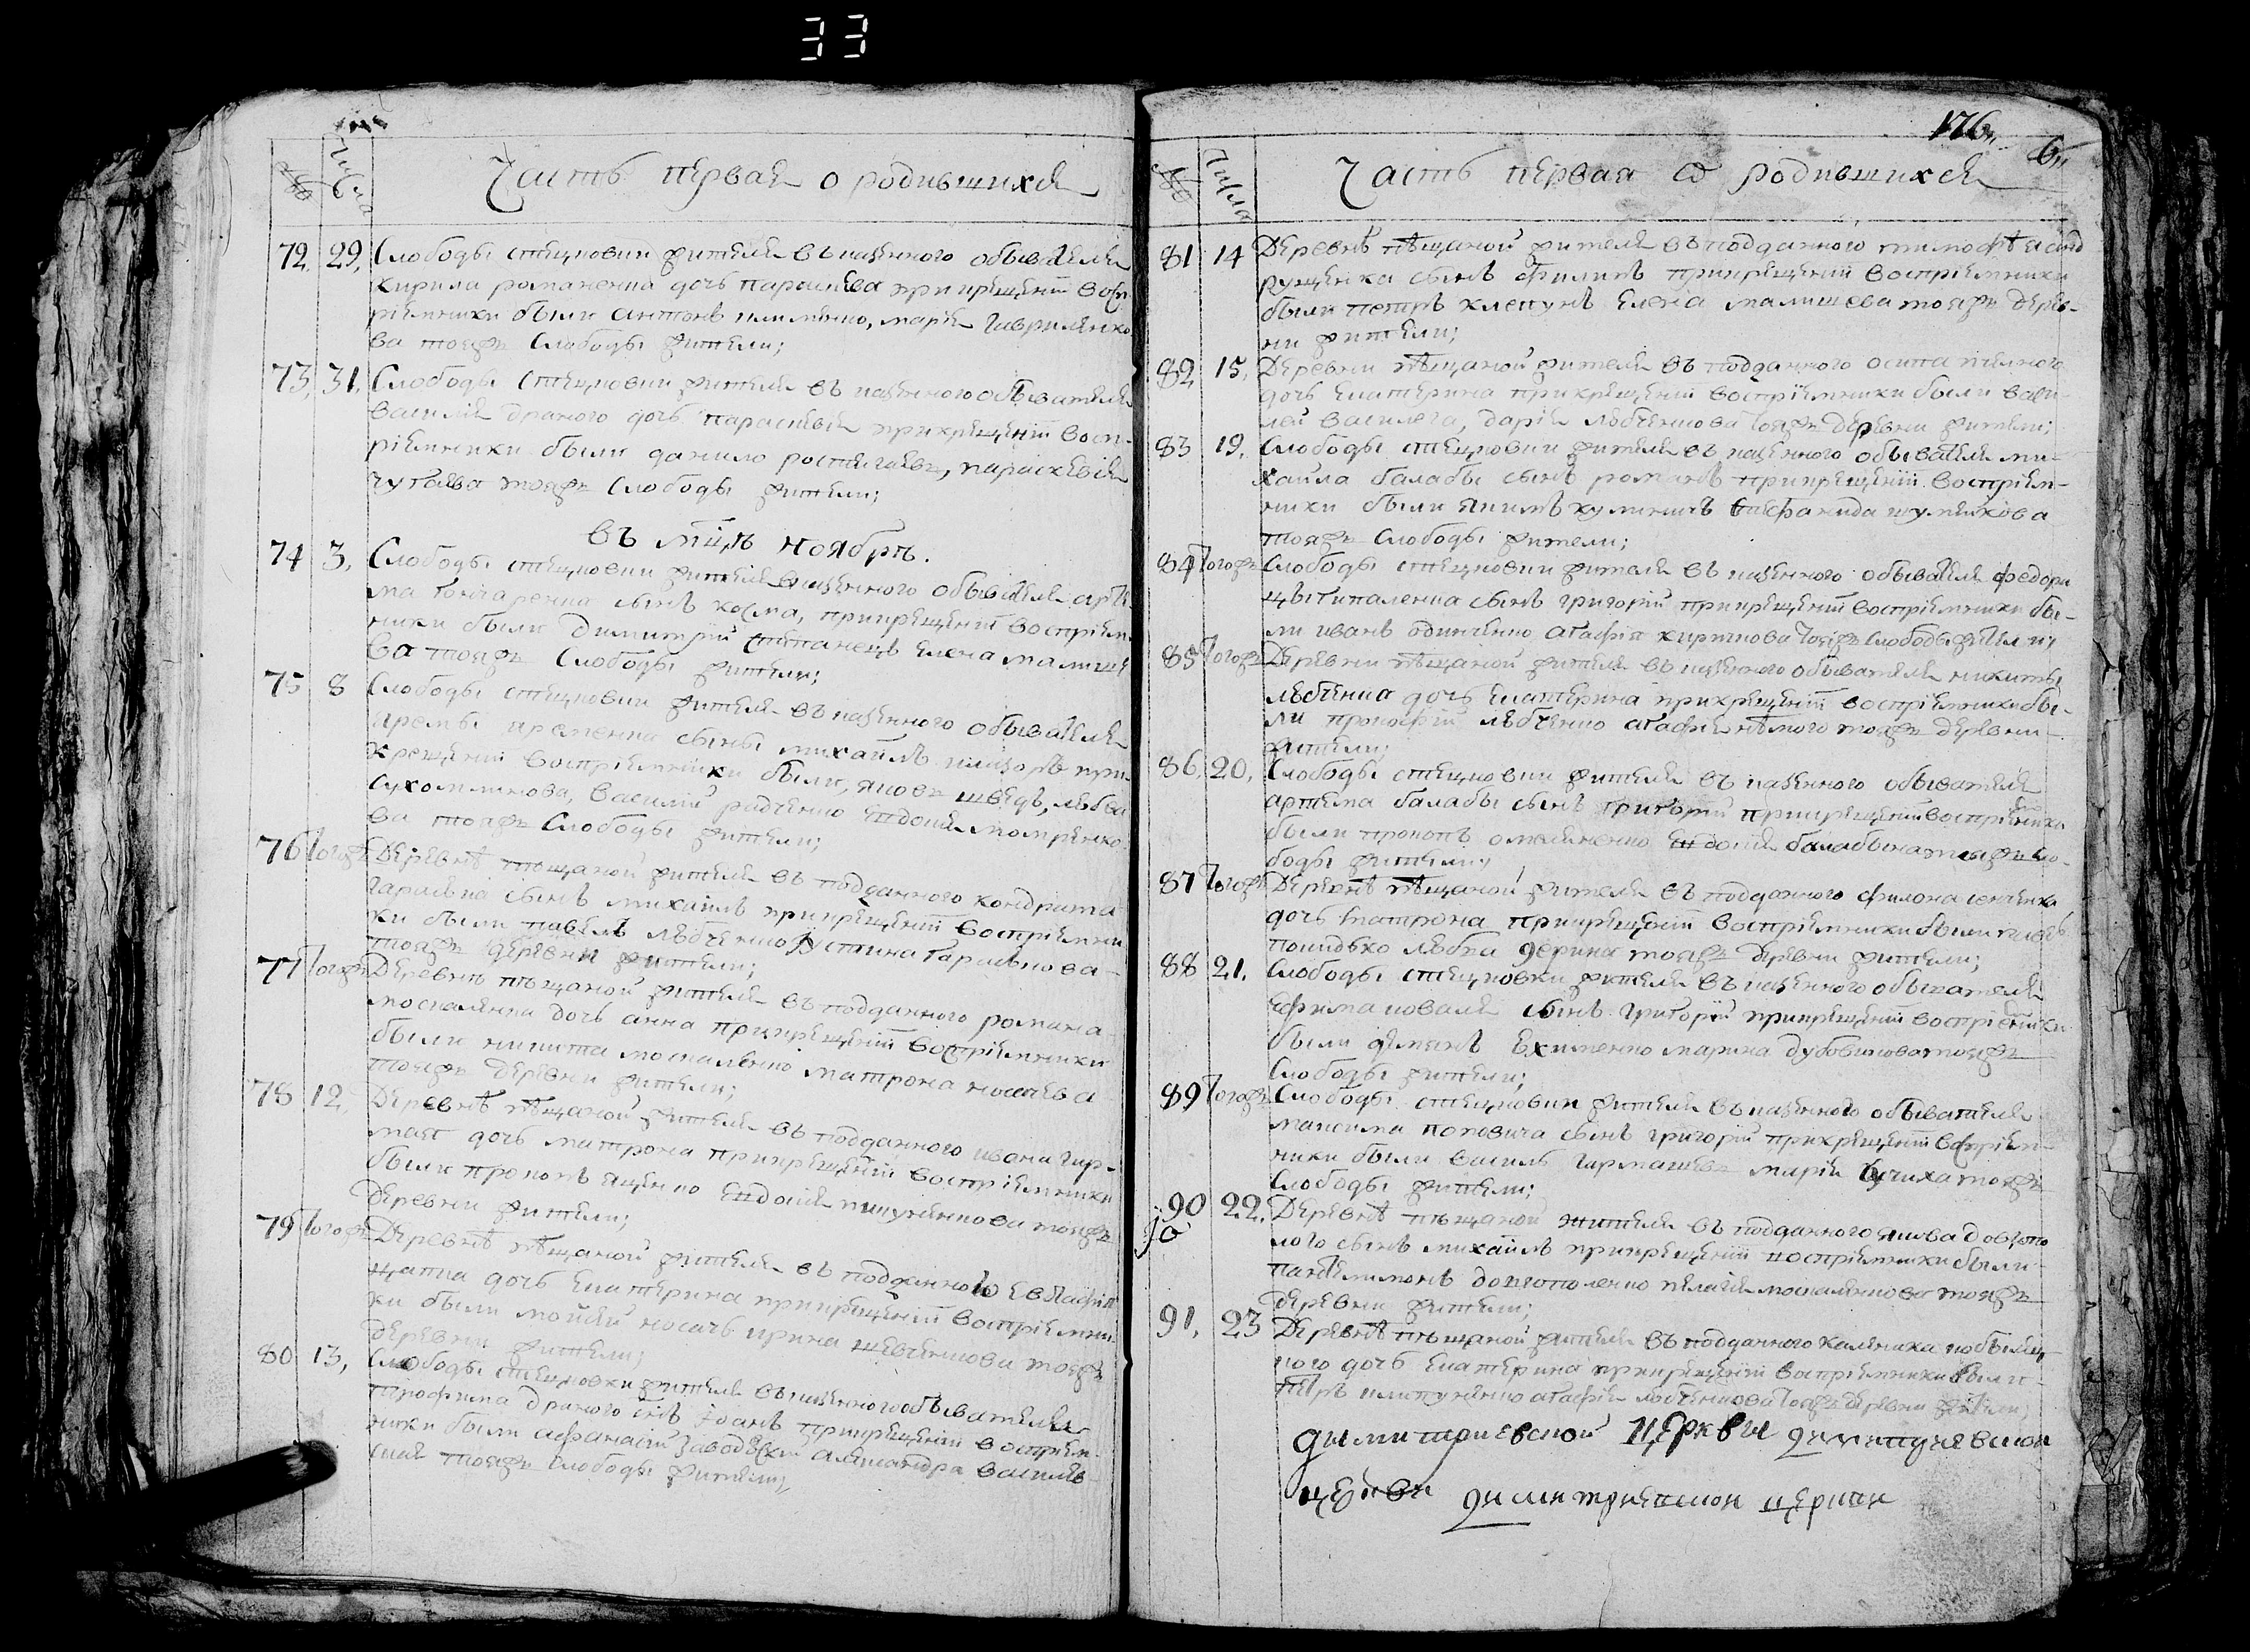 33
Часть первая о родившихся
Числа
72. 29. Слободы стецковки жителя въ казенного обывателя
кирила романенка дочь параскева прикрещенїи восп-
рїемники были антонъ клименко, марїя гавриленко-
ва тояжъ слободы жители;
73. 31. Слободы стецковки жителя въ казенного обывателя
василя драного дочь параскевїя прикрещенїи восп-
рїемники были данило ростигаевъ, параскевїя
чугаева тояжъ слободы жители;
въ мцѣ ноябрѣ.
74 3. Слободы стецковки жителя казенного обывателя артe
ма гончаренка сынъ косма, прикрещенїи воспрїем
ники были димитрїй степанецъ елена малише
ва тояжъ слободы жители;
75 8 Слободы стецковки жителя въ казенного обывателя
яремы яременка сыны михаилъ при
крещенїи воспрїемники были, яковъ шведъ, любва
сухомлинова, василїй радченко евдокїя
ва тояжъ слободы жители;
76 тогожъ Деревнѣ пѣщаной жителя въ подданного кондрата
сынъ михаилъ прикрещенїи воспрїемни
ки были павелъ лѣбченко устина
тояжъ деревни жители;
77 тогожъ Деревнѣ пѣщаной жителя въ подданного романа
москаленка дочь анна прикрещенїи воспрїемники
были никита москаленко матрона носачева
тояжъ деревни жители;
78 12. Деревнѣ пѣщаной жителя въ подданного ивана гар-
маш дочь матрона прикрещенїи воспрїемники
были прокопъ яценко евдокїя тояжъ
деревни жители;
79 тогожъ Деревнѣ пѣщаной жителя въ подданного евстафїя
цапка дочь екатерина прикрещенїи воспрїемни
ки были мойсей носачъ ирина шевченкова тояжъ
деревни жители;
80 13. Слободы стецковки жителя въ казенного обывателя
трофима драного снъ їоанъ прикрещенїи воспрїем-
ники были афанасїй заводскїй александра василев-
ская тояжъ слободы жители;
176. 6.
Часть первая о родившихся
Числа
81 14 Деревнѣ пѣщаной жителя въ подданного тимофѣя
рущенка сынъ филипъ прикрещенїи воспрїемники
были петръ клепунъ елена малишева тояжъ дерев-
ни жители;
82 15. Деревни пѣщаной жителя въ подданного осипа
дочь екатерина прикрещенїи воспрїемники были васи-
лей василега, дарїя лѣбченкова тояжъ деревни жители;
83 19. Слободы стецковки жителя въ казенного обывателя ми-
хаила балабы сынъ романъ прикрещенїи воспрїем-
ники были якимъ куминичъ стефанида шумейкова
тояжъ слободы жители;
84 тогожъ Слободы стецковки жителя въ казенного обывателя федора
сынъ григорїй прикрещенїи воспрїемники бы-
ли иванъ одинченко агафїя тояжъ слободы жители;
85 тогожъ Деревни пѣщаной жителя въ казенного обывателя никиты
лѣбченка дочь екатерина прикрещенїи воспрїемники бы-
ли прокофїй лѣбченко агафїя нѣмого тояжъ деревни
жители;
86. 20. Слободы стецковки жителя въ казенного обывателя
артема балабы сынъ григорїй прикрещенїи воспрїемники
были прокопъ омеляненко евдокїя балабына тояжъ сло-
боды жители;
87 тогожъ Деревнѣ пѣщаной жителя въ подданного филона сенченка
дочь матрона прикрещенїи воспрїемники были
любва тояжъ деревни жители;
88 21. Слободы стецковки жителя въ казенного обывателя
ефима коваля сынъ григорїй прикрещенїи воспрїемники
были демянъ ехименко марина дубовикова тояжъ
слободы жители;
89 тогожъ Слободы стецковки жителя въ казенного обывателя
максима поповича сынъ григорїй прикрещенїи воспрїем-
ники были василь гармашевъ марїя тояжъ
слободы жители;
90 22. Деревнѣ пѣщаной жителя въ подданного якова довгопо
лого сынъ михаилъ прикрещенїи воспрїемники были
пантелимонъ довгополенко пелагїя москаленкова тояжъ
деревни жители;
91. 23 Деревнѣ пѣщаной жителя въ подданного каленика кобыляц-
кого дочь екатерина прикрещенїи воспрїемники были
петръ агафїя лѣбченкова тояжъ деревни жители;
дымитриевской церквы димитриевской
церкви димитриевской церкви